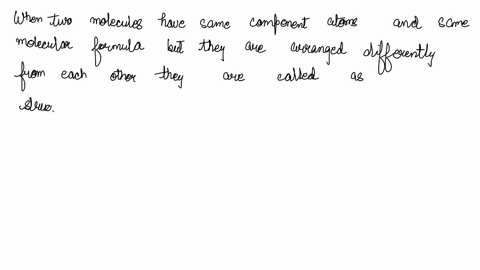 When two molecules have same component atoms and same
molecular formula but they are arranged differently
from each other they are called as